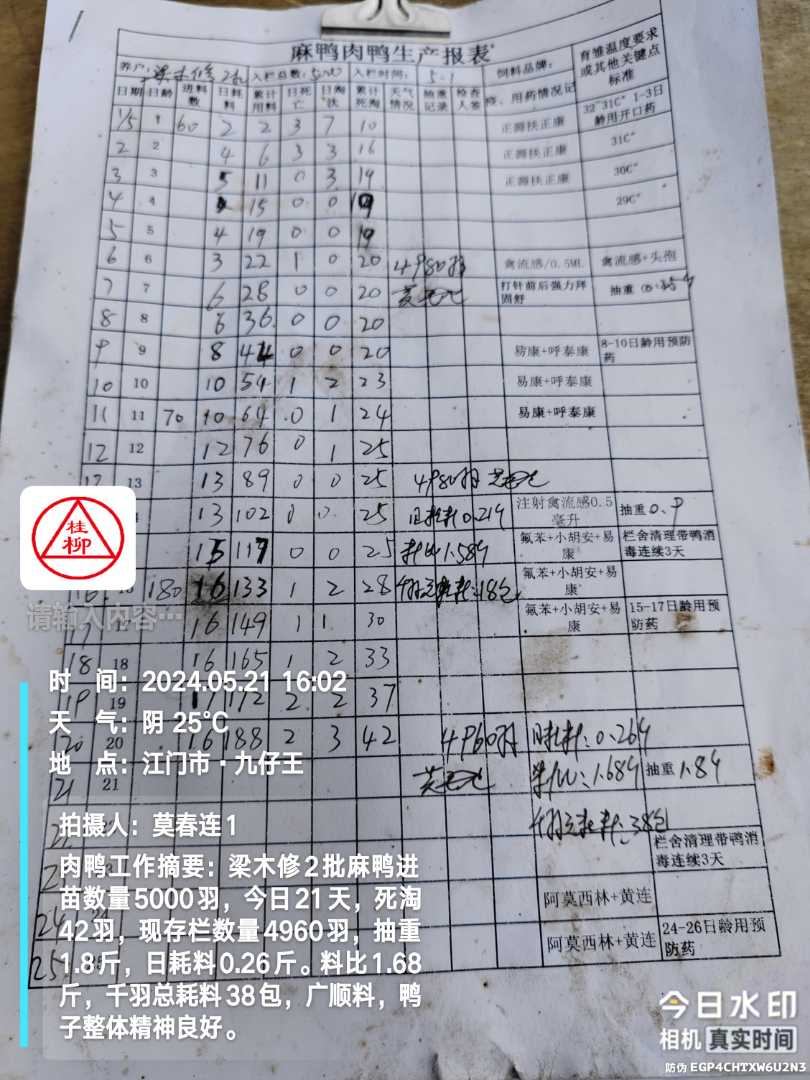 麻鸭肉鸭生产报表
养户: 梁木修 2批 入栏总数: 5000 入栏时间: 5.1 饲料品牌: 育雏温度要求或其他关键点标准
日期 日龄 进料数 日耗料 累计用料 日死亡 日淘汰 累计死淘 天气情况 抽重记录 检查人签 疫、用药情况记
1/5 1 60 2 2 3 7 10 正源扶正康 32~31C° 1-3日龄用开口药
2 2 4 6 3 3 16 正源扶正康 31C°
3 3 5 11 0 3 19 正源扶正康 30C°
4 4 15 0 0 19 29C°
5 5 4 19 0 0 19
6 6 3 22 1 0 20 4980羽 禽流感/0.5ML 禽流感+头孢
7 7 6 28 0 0 20 莫春连 打针前后强力拜固舒 抽重
8 8 8 36 0 0 20
9 9 8 44 0 0 20 易康+呼泰康 8-10日龄用预防药
10 10 10 54 1 2 23 易康+呼泰康
11 11 70 10 64 0 1 24 易康+呼泰康
12 12 12 76 0 1 25
13 13 89 0 0 25 4980羽 莫春连
13 102 0 0 25 日耗料 0.21斤 注射禽流感0.5毫升 抽重0.9
15 117 0 0 25 料比1.58斤 氟苯+小胡安+易康 栏舍清理带鸭消毒连续3天
16 180 16 133 1 2 28 千羽总耗料:18包 氟苯+小胡安+易康
17 16 149 1 1 30 氟苯+小胡安+易康 15-17日龄用预防药
18 18 16 165 1 2 33
19 19 172 2 2 37
20 20 16 188 2 3 42 4960羽 日耗料:0.26斤
21 21 莫春连 料比:1.68斤 抽重1.8斤
千羽总耗料:38包
栏舍清理带鸭消毒连续3天
24 阿莫西林+黄连
25 阿莫西林+黄连 24-26日龄用预防药
桂柳
请输入内容…
时 间: 2024.05.21 16:02
天 气: 阴 25℃
地 点: 江门市·九仔王
拍摄人: 莫春连1
肉鸭工作摘要: 梁木修2批麻鸭进
苗数量5000羽,今日21天,死淘
42羽,现存栏数量4960羽,抽重
1.8斤,日耗料0.26斤。料比1.68
斤,千羽总耗料38包,广顺料,鸭
子整体精神良好。
今日水印
相机 真实时间
防伪 EGP4CHTXW6U2N3